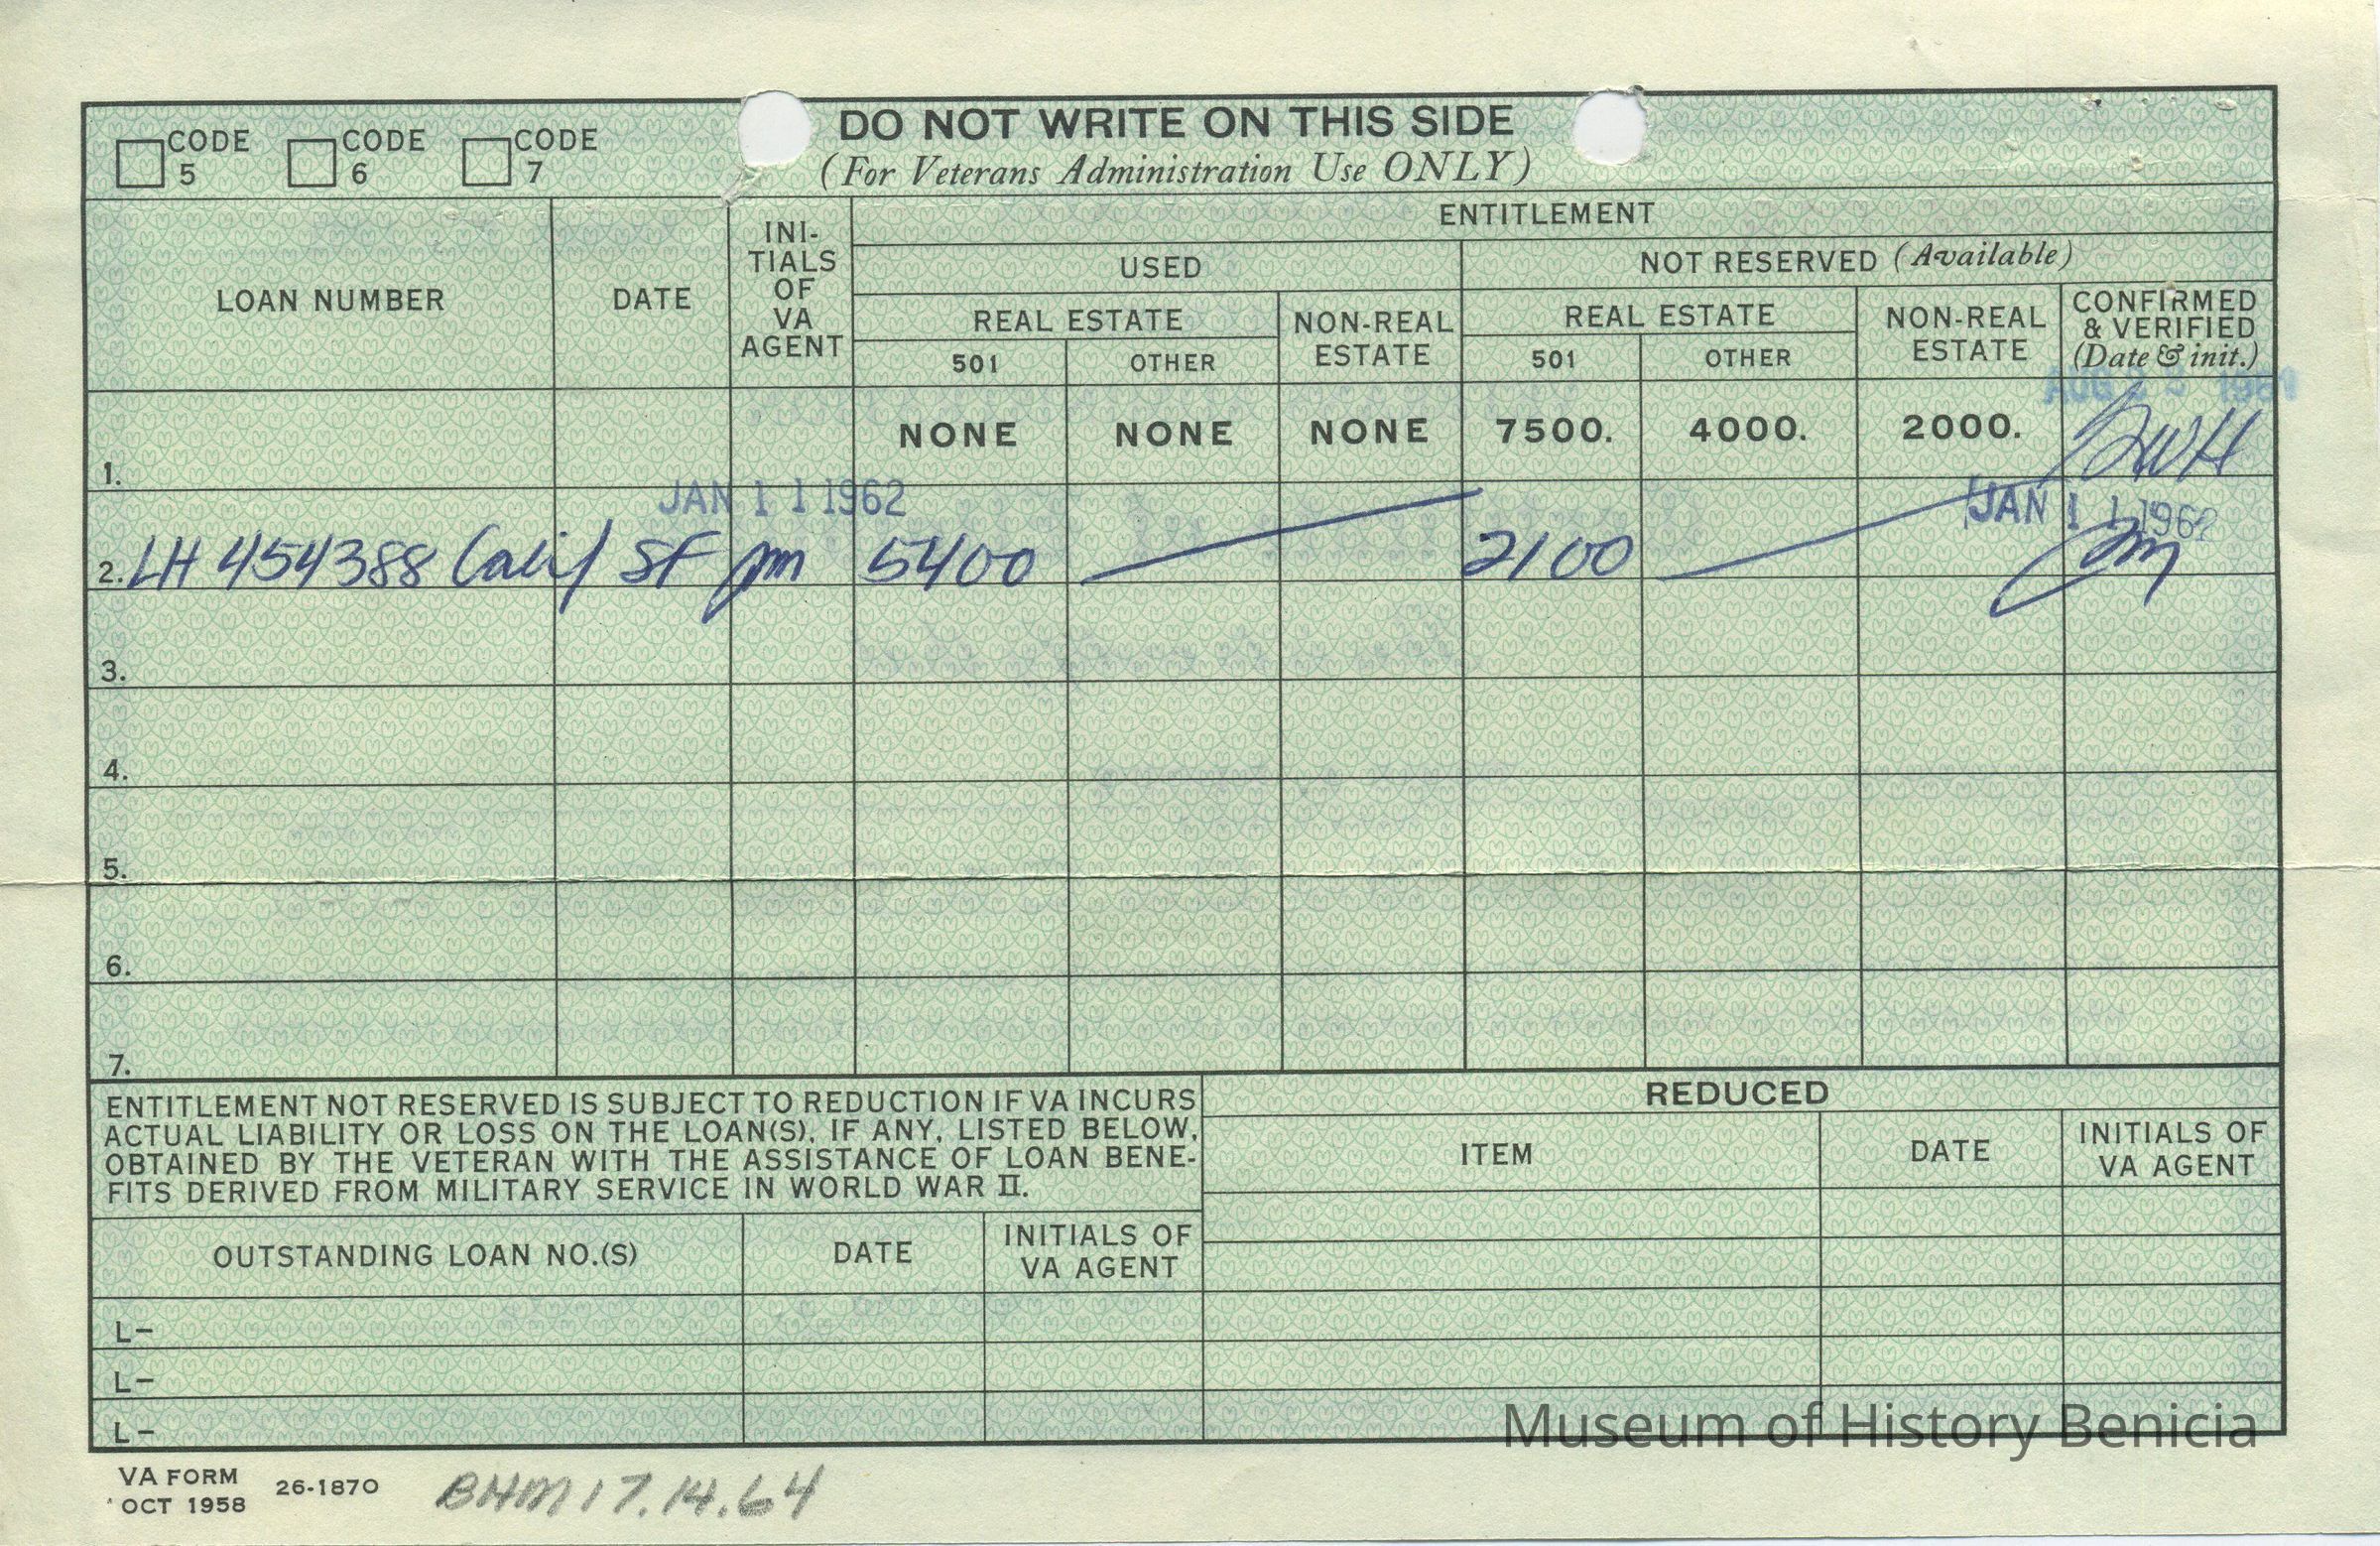 CODE 5 CODE 6 CODE 7
DO NOT WRITE ON THIS SIDE
(For Veterans Administration Use ONLY)
LOAN NUMBER
DATE
INI-
TIALS
OF
VA
AGENT
ENTITLEMENT
USED
NOT RESERVED (Available)
REAL ESTATE
NON-REAL
ESTATE
REAL ESTATE
NON-REAL
ESTATE
CONFIRMED
& VERIFIED
(Date & init.)
501 OTHER 501 OTHER
AUG 1961
1. NONE NONE NONE 7500. 4000. 2000.
JAN 11 1962 JAN 11 1962
2. LH 454388 Calif SF jm 5400 2100 jm
3.
4.
5.
6.
7.
ENTITLEMENT NOT RESERVED IS SUBJECT TO REDUCTION IF VA INCURS
ACTUAL LIABILITY OR LOSS ON THE LOAN(S), IF ANY, LISTED BELOW,
OBTAINED BY THE VETERAN WITH THE ASSISTANCE OF LOAN BENE-
FITS DERIVED FROM MILITARY SERVICE IN WORLD WAR II.
REDUCED
ITEM
DATE
INITIALS OF
VA AGENT
OUTSTANDING LOAN NO.(S)
DATE
INITIALS OF
VA AGENT
L-
L-
L-
Museum of History Benicia
VA FORM
OCT 1958
26-1870
BHM 17.14.64